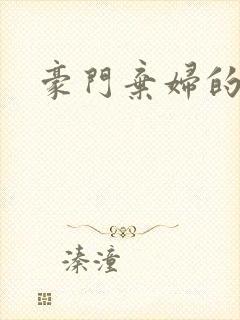 豪門棄婦的
溱潼